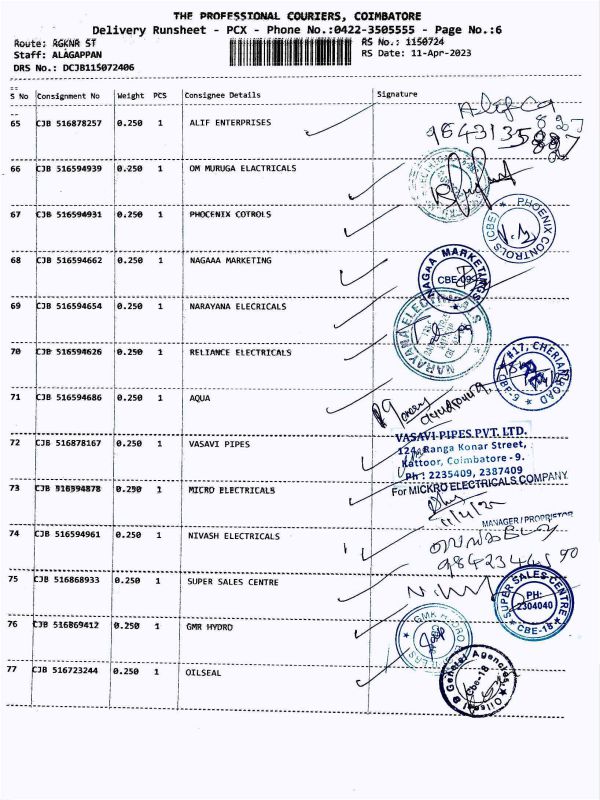 THE PROFESSIONAL COURIERS, COIMBATORE
Delivery Runsheet - PCX - Phone No.:0422-3505555 - Page No.:6
Route: RGKNR ST RS No.: 1150724
Staff: ALAGAPPAN RS Date: 11-Apr-2023
DRS No.: DCJB115072406
S No Consignment No Weight PCS Consignee Details Signature
65 CJB 516878257 0.250 1 ALIF ENTERPRISES
66 CJB 516594939 0.250 1 OM MURUGA ELACTRICALS
67 CJB 516594931 0.250 1 PHOCENIX COTROLS
PHOENIX CONTROLS (CBE)
68 CJB 516594662 0.250 1 NAGAAA MARKETING
NAGAA MARKETINGS
CBE-09
69 CJB 516594654 0.250 1 NARAYANA ELECRICALS
NARAYANA ELECTRICALS
70 CJB 516594626 0.250 1 RELIANCE ELECTRICALS
#17, CHERIAN ROAD
CBE-9
71 CJB 516594686 0.250 1 AQUA
72 CJB 516878167 0.250 1 VASAVI PIPES
VASAVI PIPES PVT. LTD.
124, Ranga Konar Street,
Kattoor, Coimbatore - 9.
Ph : 2235409, 2387409
73 CJB 516594878 0.250 1 MICRO ELECTRICALS
For MICKRO ELECTRICALS COMPANY
MANAGER / PROPRIETOR
74 CJB 516594961 0.250 1 NIVASH ELECTRICALS
75 CJB 516868933 0.250 1 SUPER SALES CENTRE
SUPER SALES CENTRE
PH:
2304040
CBE-18
76 CJB 516869412 0.250 1 GMR HYDRO
GMR HYDRO
77 CJB 516723244 0.250 1 OILSEAL
Oilseal & General Agencies
Cbe-18